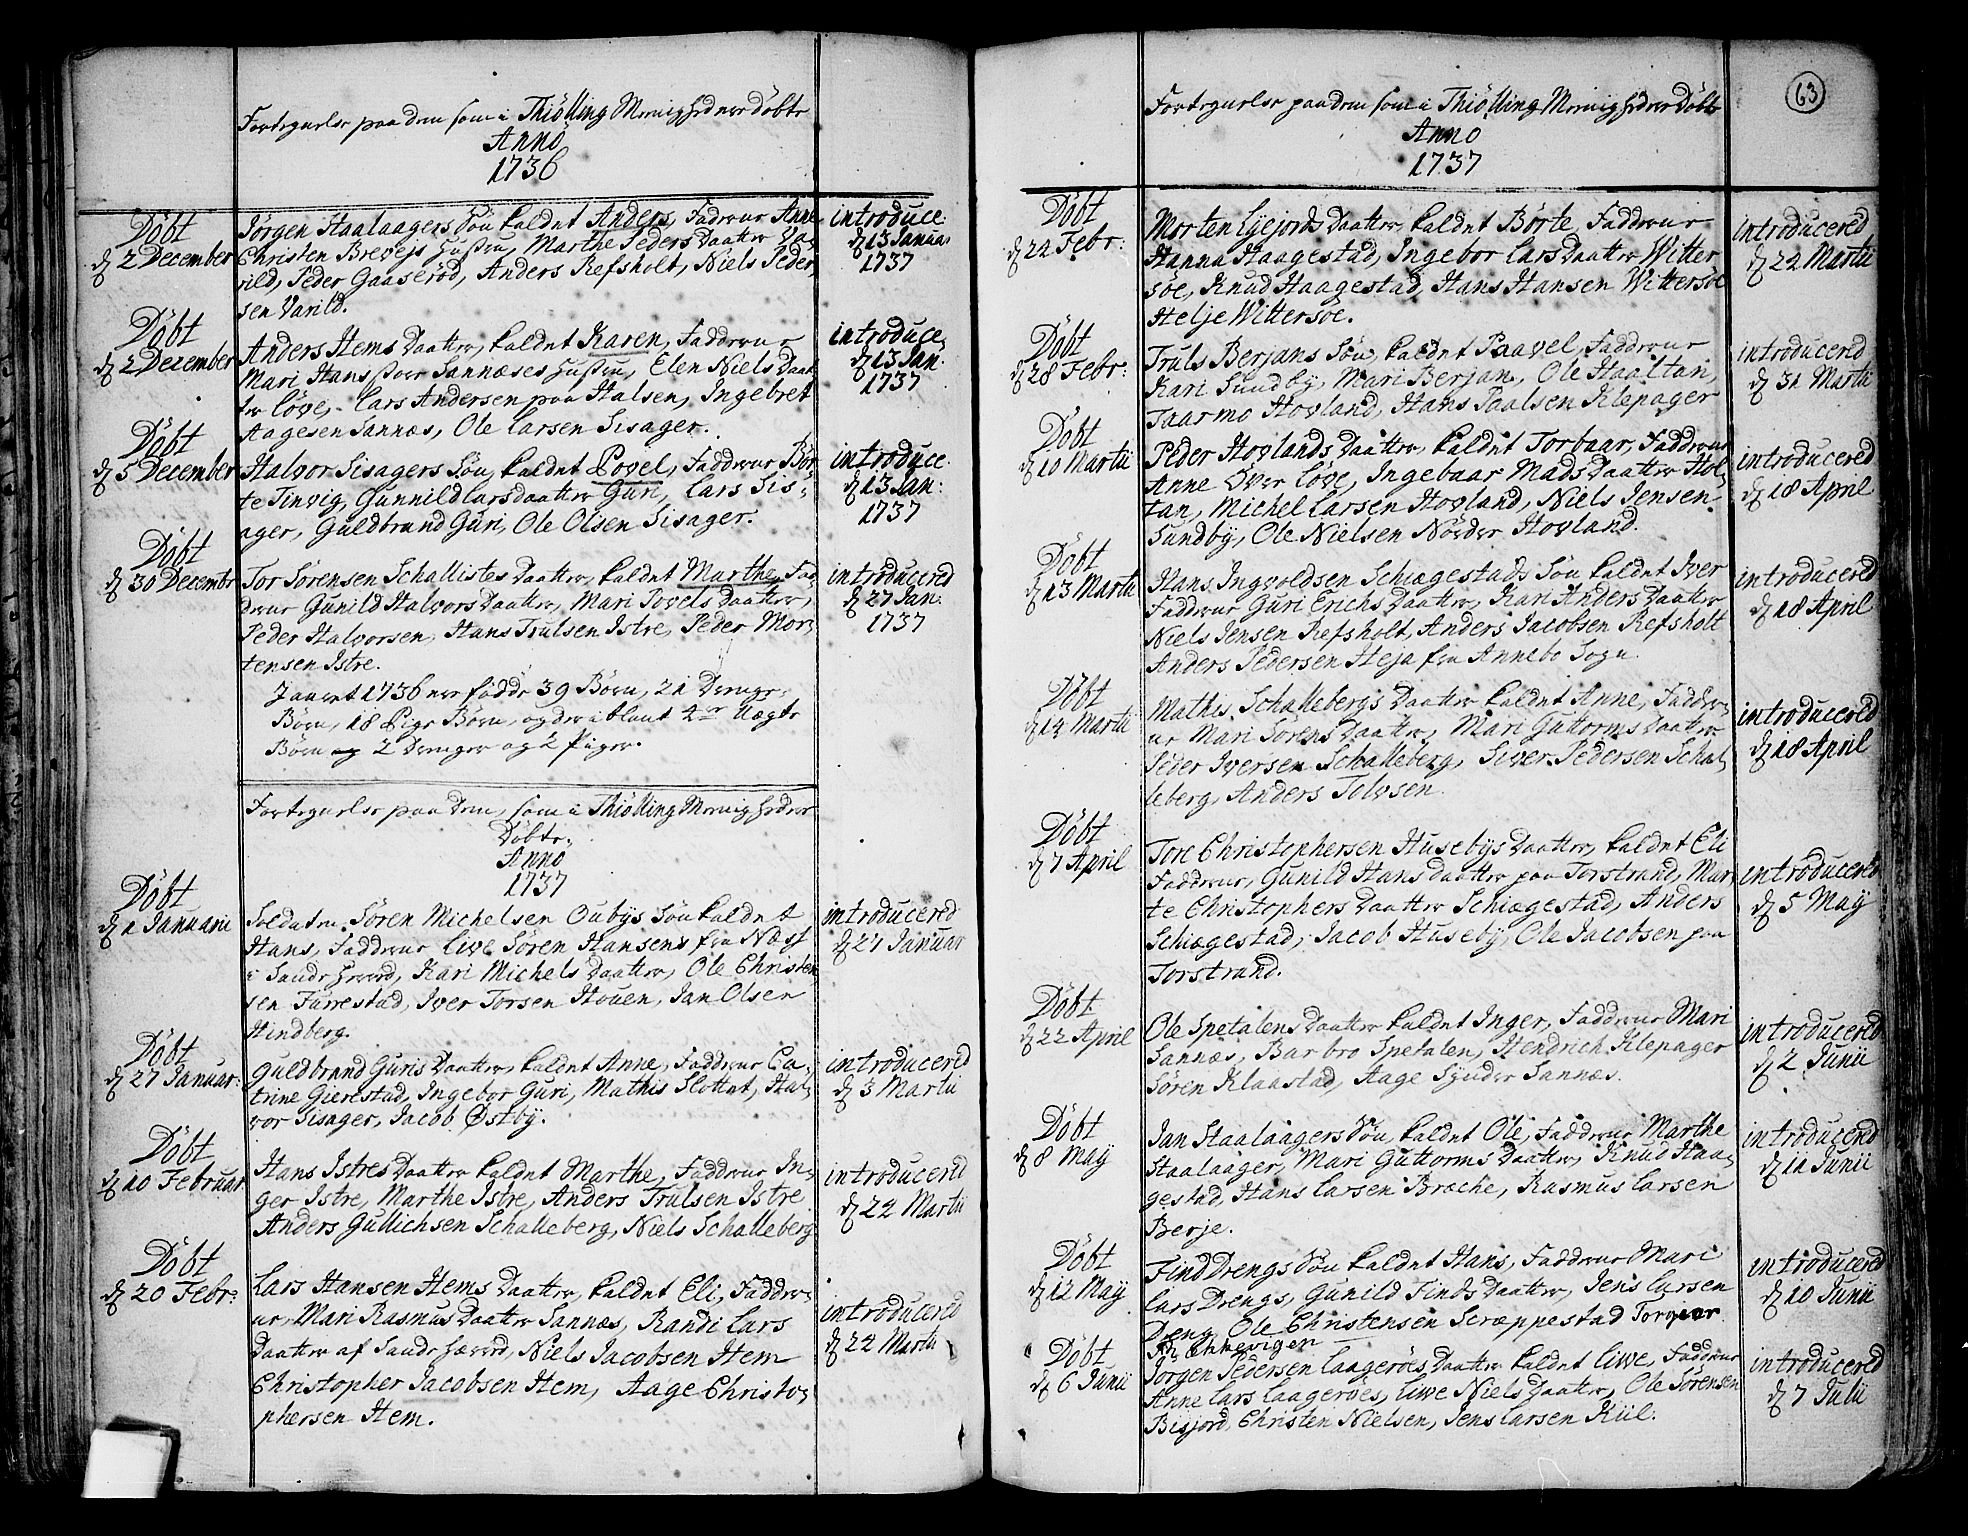 Fortegnelse paa dem som i Thiölling Menighed ere döbte
Anno
1736
Döbt
d 2 December
Jörgen Haalaagers Sön kaldet Anders, Faddere Anne
Christen Brevejs Hustru, Marthe Peders Daatter Va-
rild, Peder Gaaseröd, Anders Refsholt, Niels Peder-
sen Varild.
introduce:
d 13 Januar
1737
Döbt
d 2 December
Anders Hems Daatter, kaldet Karen, Faddere
Mari Hans Sannæses Hustru, Elen Niels Daat-
ter Löve, Lars Andersen paa Halsen, Ingebret
Aagesen Sannæs, Ole Larsen Sisager.
introduce.
d 13 Jan:
1737
Döbt
d 5 December
Halvor Sisagers Sön, kaldet Povel, Faddere Bör-
te Tinvig, Gunnild Larsdaatter Guri, Lars Sis-
ager, Guldbrand Guri, Ole Olsen Sisager.
introduce.
d 13 Jan:
1737
Döbt
d 30 Decembr
Tor Sörensen Schallistes Daatter, kaldet Marthe, Fad-
dere Gunild Halvors Daatter, Mari Povels Daatter,
Peder Halvorsen, Hans Trulsen Istre, Peder Mor-
tensen Istre.
introducered
d 27 Jan:
1737
I aaret 1736 ere födde 39 Börn, 21 Drenge-
Börn, 18 Pige Börn, og der iblant 4re Uægte
Börn 2 Drenge og 2 Piger.
Fortegnelse paa dem, som i Thiölling Menighed ere
Döbte.
Anno
1737
Döbt
d 1 Januarii
Soldaten Sören Michelsen Oubys Sön kaldet
Hans, Faddere Live Sören Hansens fra Næss
i Sandehered, Kari Michels Daatter, Ole Christen-
sen Furrestad, Iver Torsen Houen, Jan Olsen
Hindberg.
introducered
d 27 Januar
Döbt
d 27 Januar:
Guldbrand Guris Daatter, kaldet Anne, Faddere Ca-
trine Gierestad, Ingebor Guri, Mathis Slottet, Hal-
vor Sisager, Jacob Østby.
introducered
d 3 Martii
Döbt
d 10 Februar
Hans Istres Daatter kaldet Marthe, Faddere In-
ger Istre, Marthe Istre, Anders Trulsen Istre
Anders Gullichsen Schalleberg, Niels Schalleberg
introducered
d 24 Martii
Döbt
d 20 Febr:
Lars Hansen Hems Daatter, kaldet Eli, Fadde-
re, Mari Rasmus Daatter Sannæs, Randi Lars
Daatter af Sande Hærred, Niels Jacobsen Hem
Christopher Jacobsen Hem, Aage Christo-
phersen Hem.
introducered
d 24 Martii
63
Fortegnelse paa dem som i Thiölling Menighed ere Döbte
Anno
1737
Döbt
d 24 Febr:
Morten Ejejords Daatter, kaldet Börte, Faddere
Hanna Haagestad, Ingebor Lars Daatter Witter
söe, Knud Haagestad, Hans Hansen Wittersöe
Helje Wittersöe.
introducered
d 24 Martii
Döbt
d 28 Febr:
Truls Berjans Sön, kaldet Paavel, Faddere
Kari Sundby, Mari Berjan, Ole Haaltan,
Taarmo Hovland, Hans Paalsen Klepager
introducered
d 31 Martii
Döbt
d 10 Martii
Peder Hovlands Daatter, kaldet Torbaar, Faddere
Anne Över Löve, Ingebaar Mads Daatter Hol-
tan, Michel Larsen Hovland, Niels Jensen
Sundby, Ole Nielsen Nörder Hovland.
introducered
d 18 April
Döbt
d 13 Martii
Hans Ingvoldsen Schiægestads Sön kaldet Iver
Faddere Guri Erichs Daatter, Kari Anders Daatter
Niels Jensen Refsholt, Anders Jacobsen Refsholt
Anders Pedersen Heja fra Annebo Sogn.
introducered
d 18 April
Döbt
d 14 Martii
Mathis Schallebergs Daatter kaldet Anne, Fadde-
re Mari Sörens Daatter, Mari Guttorms Daatter
Peder Iversen Schalleberg, Siver Pedersen Schal-
leberg, Anders Tolvsen.
introducered
d 18 April
Döbt
d 7 April
Tore Christophersen Husebys Daatter, kaldet Eli
Faddere, Gunild Hans Daatter paa Torstrand, Mar-
te Christophers Daatter Schiægestad, Anders
Schiægestad, Jacob Huseby, Ole Jacobsen paa
Torstrand.
introducered
d 5 Maÿ
Döbt
d 22 April
Ole Spetalens Daatter kaldet Inger, Faddere Mari
Sannæs, Barbro Spetalen, Hendrich Klepager
Sören Klaastad, Aage Synder Sannæs.
introducered
d 2 Junii
Döbt
d 8 Maÿ
Jan Haalaagers Sön, kaldet Ole, Faddere Marthe
Haalaager, Mari Guttorms Daatter, Knud Haa-
gestad, Hans Larsen Broche, Rasmus Larsen
Berje.
introducered
d 11 Junii
Döbt
d 12 Maÿ
Find Drengs Sön kaldet Hans, Faddere Mari
Lars Drengs, Gunild Finds Daatter, Jens Larsen
Dreng, Ole Christensen Scræppestad
introducered
d 10 Junii
Döbt
d 6 Junii
Jörgen Pedersen Laageröes Daatter kaldet Liwe, Faddere
Anne Lars Laageröes, Liwe Niels Daatter, Ole Sörensen
Bisjord, Christen Nielsen, Jens Larsen Kiil.
introducered
d 7 Julii